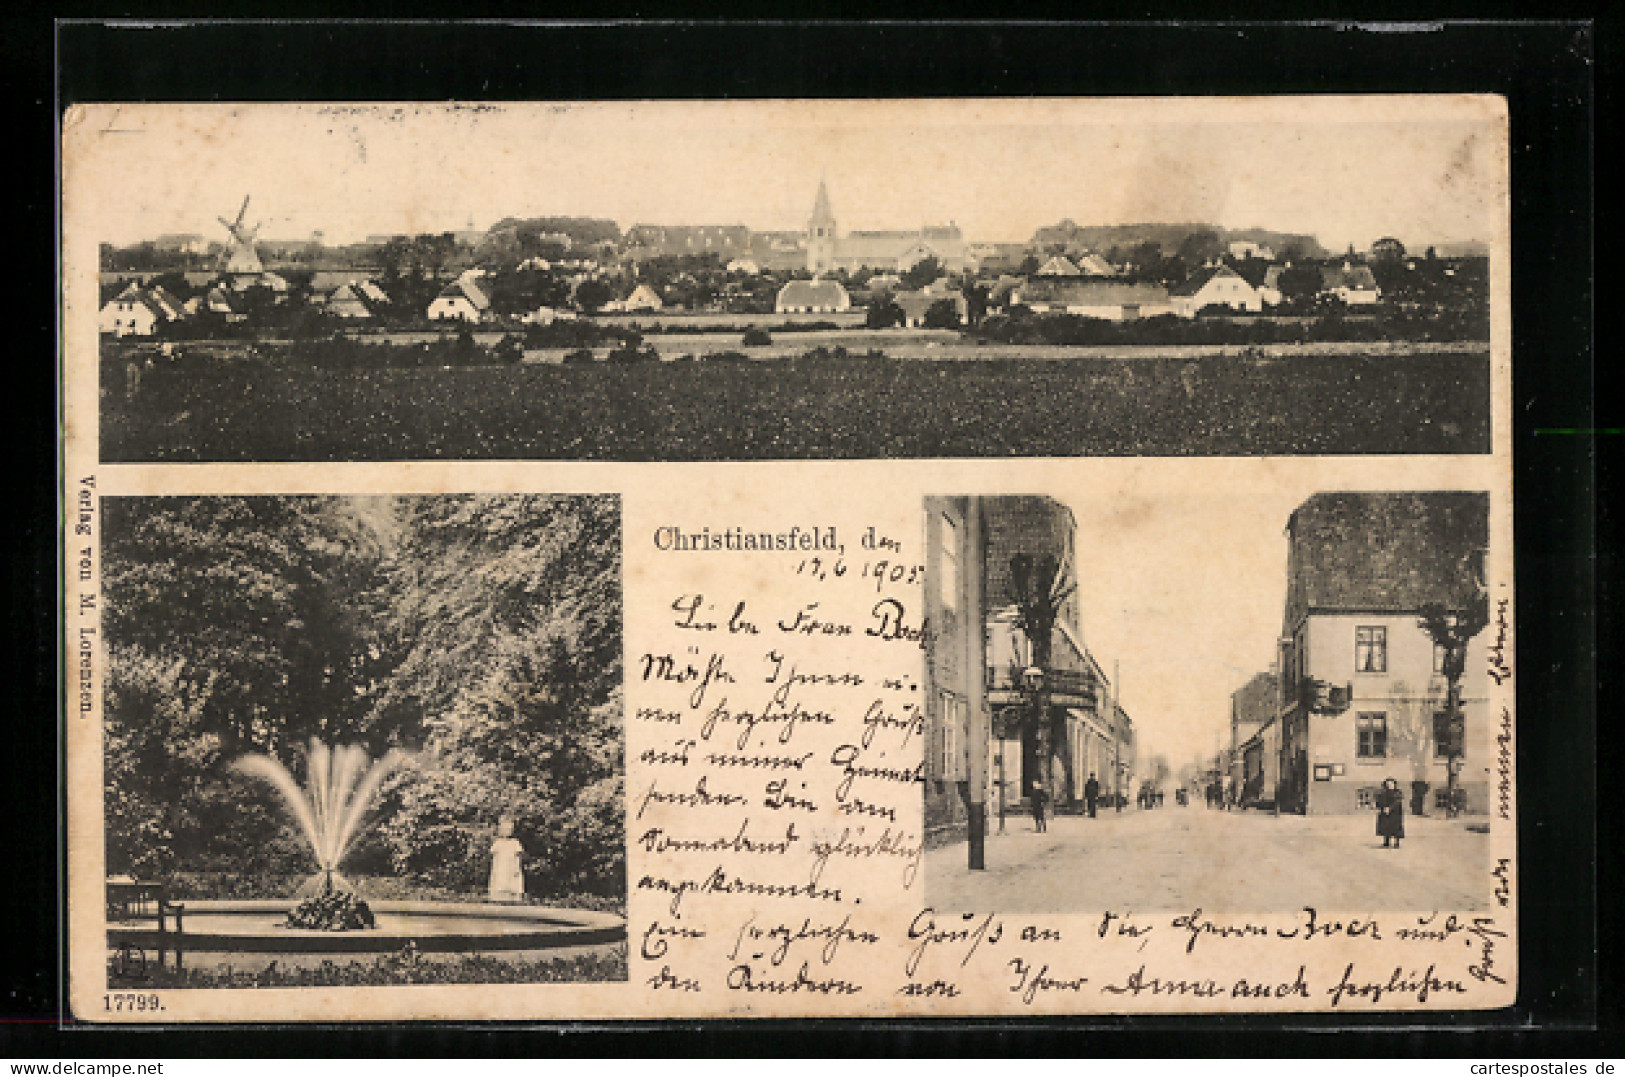 Christiansfeld, den
17.6 1905.
Liebe Frau Bock
Möchte Ihnen ei-
nen herzlichen Gruß
aus meiner Heimat
senden. Bin am
Sonnabend glücklich
angekommen.
Ein herzlichen Gruß an Sie, Herrn Bock und
den Kindern von Ihrer Anna auch herzlichen
Gruß von meinen
Verlag von M. Lorenzen.
17799.
www.cartespostales.com
cartespostales de